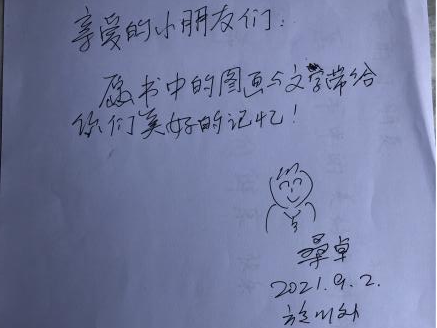 亲爱的小朋友们:
愿书中的图画与文学带给
你们美好的记忆!
桑卓
2021.9.2.